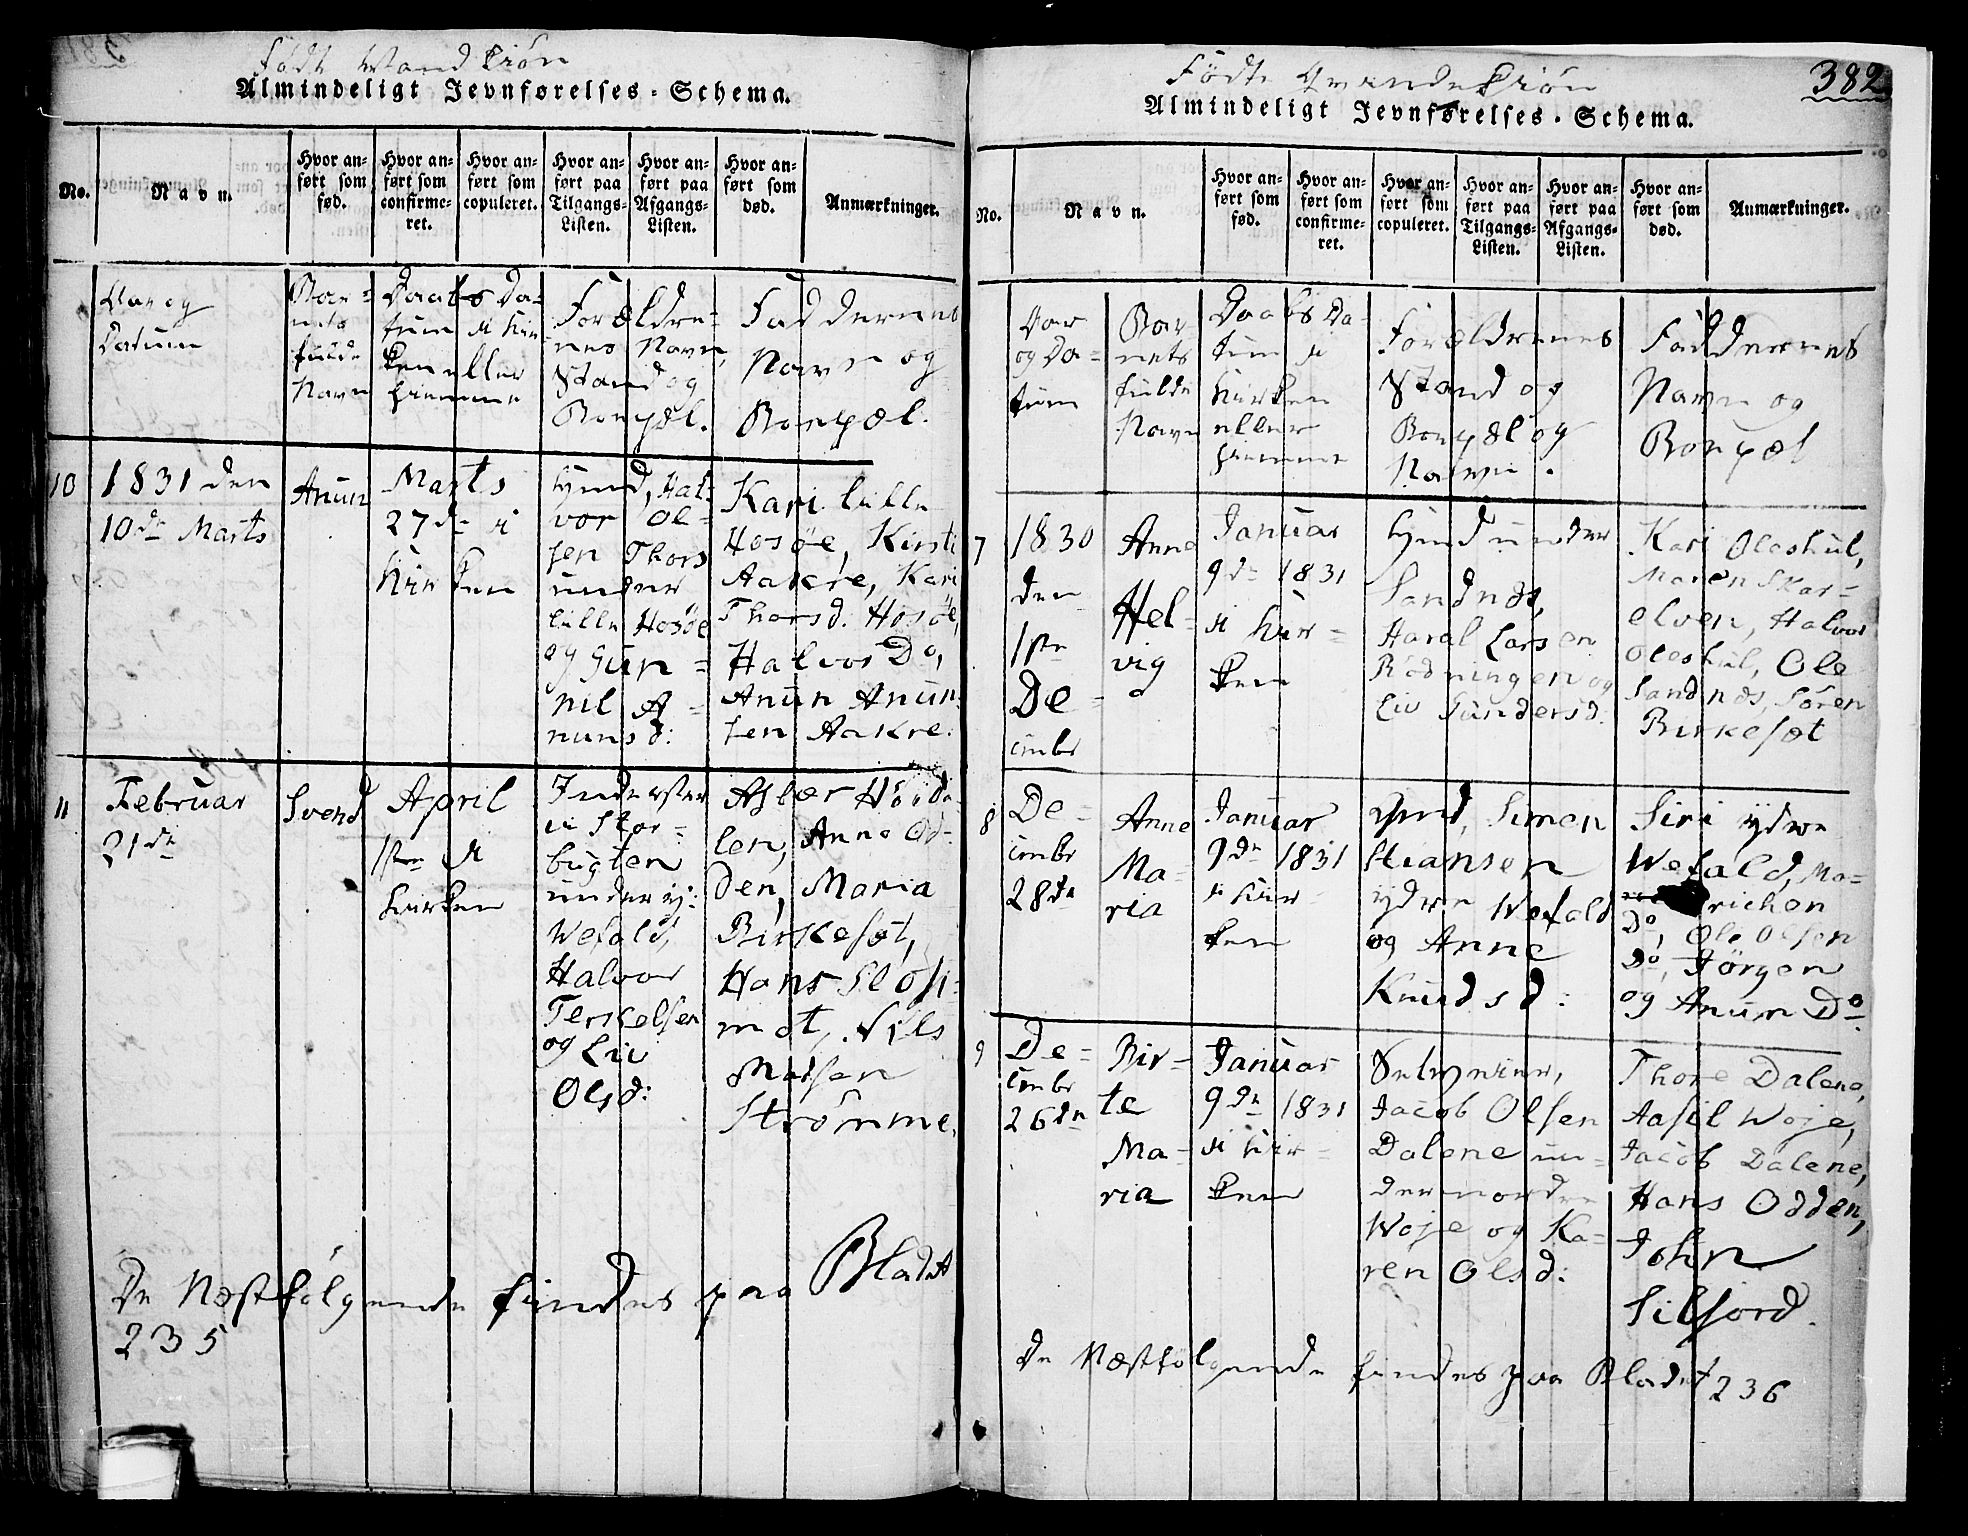 Födt Mandkiön
Almindeligt Jevnførelses-Schema.
No.
Navn.
Hvor anført som fød.
Hvor anført som confirmeret.
Hvor anført som copuleret.
Hvor anført paa Tilgangs-Listen.
Hvor anført paa Afgangs-Listen.
Hvor anført som død.
Anmærkninger.
Aar og
Datum
Bar=
nets
fulde
Navn
Daabs Da=
tum i Kir
ken eller
hiemme
Forældre=
nes Navn,
Stand og
Boepæl.
Faddernes
Navn og
Boepæl.
10
1831 den
10de Marts
Anun
Marts
27de i
Kirken
Gmd, Hal=
vor Ol=
sen Thors
under
lille Hosöe
og Gun=
nil A=
nunsd:
Kari lille
Hosöe, Kirsti
Aakre, Kari
Thorsd: Hosöe,
Halvor Do,
Anun Anun=
sen Aakre.
11
Februar
21de
Svend
April
1ste i
Kirken
Inderster
i Stor=
bugten
under y:
Wefald,
Halvor
Terkelsen
og Liv
Olsd:
Asler Höida=
len, Anne Od=
den, Maria
Birkesöt,
Hans Slos=
mot, Nils
Madsen
Strömme.
De Næstfölgende findes paa Bladet
235
382
Födte Qvindekiön
Almindeligt Jevnførelses-Schema.
No.
Navn.
Hvor anført som fød.
Hvor anført som confirmeret.
Hvor anført som copuleret.
Hvor anført paa Tilgangs-Listen.
Hvor anført paa Afgangs-Listen.
Hvor anført som død.
Anmærkninger.
Aar
og Da=
tum
Bar
nets
fulde
Navn
Daabs Da=
tum i
Kirken
eller
hiemme
Forældrenes
Stand og
Boepæl og
Navn.
Faddernes
Navn og
Boepæl
7
1830
den
1ste
De=
cembr
Anne
Hel=
vig
Januar
9de 1831
i Kir=
ken
Gmd under
Sandnæs,
Haral Larsen
Rödningen og
Liv Gundersd:
Kari Oleshul,
Maren Skar=
elven, Halvor
Oleshul, Ole
Sandnæs, Sören
Birkesöt
8
De=
cembr
28de
Anne
Ma=
ria
Januar
9de 1831
i Kir=
ken
Gmd, Simen
Stiansen
ydre Wefald
og Anne
Knudsd:
Siri ydre
Wefald, Ma=
richen
Do, Ole Olsen
Do, Jörgen
og Anun Do.
9
De=
cembr
26de
Bir=
te
Ma=
ria
Januar
9de 1831
i Kir=
ken
Selveier,
Jacob Olsen
Dalene un=
der nordre
Woje og Ka=
ren Olsd:
Thore Dalene,
Aasil Woje,
Jacob Dalene,
Hans Odden,
John
Silfjord.
De Næstfölgende findes paa Bladet 236